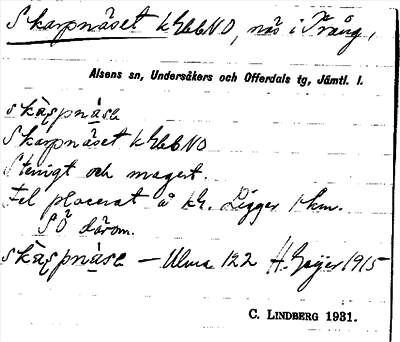 Skarpnäset kGbbNO, näs i Trång,
Alsens sn, Undersåkers och Offerdals tg, Jämtl. l.
skàṣpnä́sə
Skarpnäset kGbbNO
Stenigt och magert.
Fel placerat å kt. Ligger 1 km.
SÖ därom.
skàṣpnä́sə — Ulma 122 H. Geijer 1915
C. LINDBERG 1931.